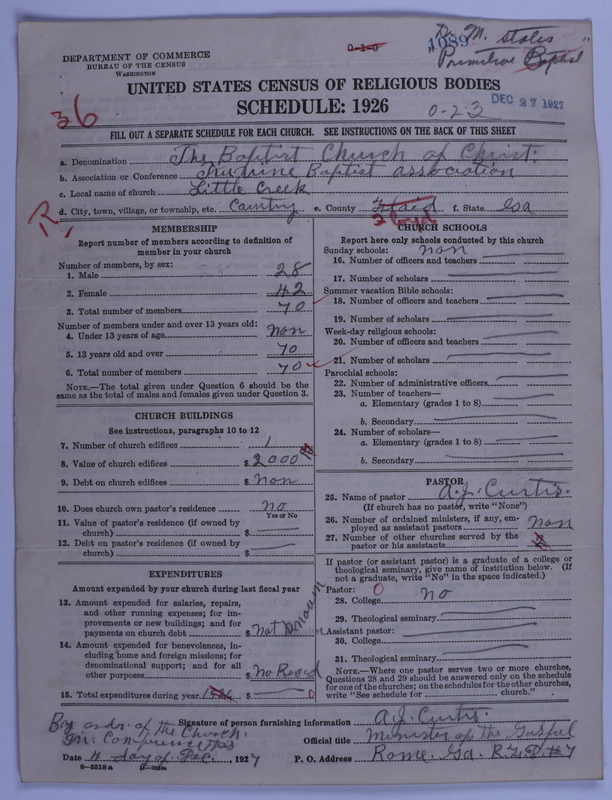 Dr. M. States
1089 "
Primitive Baptist
0-1-0
DEPARTMENT OF COMMERCE
BUREAU OF THE CENSUS
WASHINGTON
UNITED STATES CENSUS OF RELIGIOUS BODIES
SCHEDULE: 1926
36
0-23
DEC 27 1927
FILL OUT A SEPARATE SCHEDULE FOR EACH CHURCH. SEE INSTRUCTIONS ON THE BACK OF THIS SHEET
a. Denomination The Baptist Church of Christ.
b. Association or Conference Baptist association
c. Local name of church Little Creek
R,
d. City, town, village, or township, etc. Country e. County Floyd f. State Ga
MEMBERSHIP
Report number of members according to definition of
member in your church
Number of members, by sex:
1. Male 28
2. Female 42
3. Total number of members 70
Number of members under and over 13 years old:
4. Under 13 years of age non
5. 13 years old and over 70
6. Total number of members 70
NOTE.—The total given under Question 6 should be the
same as the total of males and females given under Question 3.
CHURCH BUILDINGS
See instructions, paragraphs 10 to 12
7. Number of church edifices 1
8. Value of church edifices $ 2000
9. Debt on church edifices $ non
10. Does church own pastor's residence no
Yes or No
11. Value of pastor's residence (if owned by
church) $
12. Debt on pastor's residence (if owned by
church) $
EXPENDITURES
Amount expended by your church during last fiscal year
13. Amount expended for salaries, repairs,
and other running expenses; for im-
provements or new buildings; and for
payments on church debt $ not Known
14. Amount expended for benevolences, in-
cluding home and foreign missions; for
denominational support; and for all
other purposes $ no Record
15. Total expenditures during year 1926 $ 0
CHURCH SCHOOLS
Report here only schools conducted by this church
Sunday schools: non
16. Number of officers and teachers
17. Number of scholars
Summer vacation Bible schools:
18. Number of officers and teachers
19. Number of scholars
Week-day religious schools:
20. Number of officers and teachers
21. Number of scholars
Parochial schools:
22. Number of administrative officers
23. Number of teachers—
a. Elementary (grades 1 to 8)
b. Secondary
24. Number of scholars—
a. Elementary (grades 1 to 8)
b. Secondary
PASTOR
25. Name of pastor A.J. Curtis.
(If church has no pastor, write "None")
26. Number of ordained ministers, if any, em-
ployed as assistant pastors non
27. Number of other churches served by the
pastor or his assistants
If pastor (or assistant pastor) is a graduate of a college or
theological seminary, give name of institution below. (If
not a graduate, write "No" in the space indicated.)
Pastor: 0
28. College no
29. Theological seminary
Assistant pastor:
30. College
31. Theological seminary
NOTE.—Where one pastor serves two or more churches,
Questions 28 and 29 should be answered only on the schedule
for one of the churches; on the schedules for the other churches,
write "See schedule for church."
By ordr of the Church.
Signature of person furnishing information A.J. Curtis.
Official title Minister of the Gosspul
Date 4 day of Dec. , 1927 P. O. Address Rome. Ga. R.F.D. #7
8—5518a